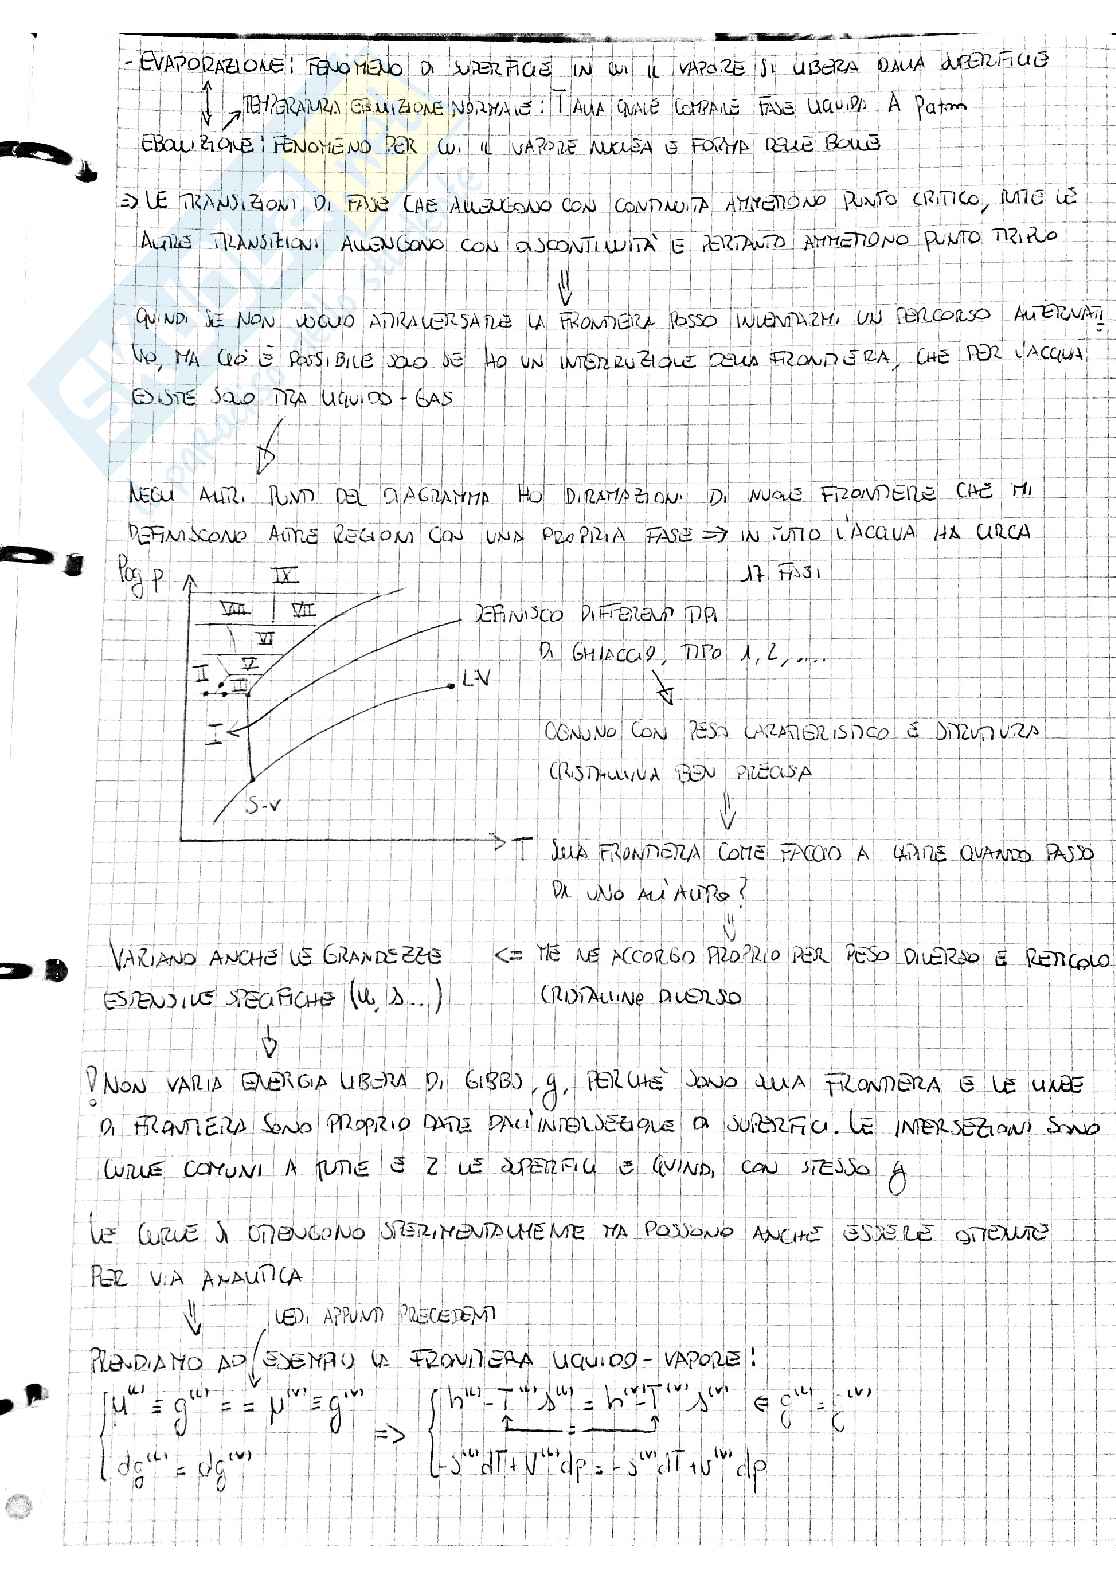 - EVAPORAZIONE: FENOMENO DI SUPERFICIE IN CUI IL VAPORE SI LIBERA DALLA SUPERFICIE
TEMPERATURA EBOLLIZIONE NORMALE: T ALLA QUALE COMPARE FASE LIQUIDA A Patm
EBOLLIZIONE: FENOMENO PER CUI IL VAPORE NUCLEA E FORMA DELLE BOLLE
=> LE TRANSIZIONI DI FASE CHE AVVENGONO CON CONTINUITÀ AMMETTONO PUNTO CRITICO, TUTTE LE
ALTRE TRANSIZIONI AVVENGONO CON DISCONTINUITÀ E PERTANTO AMMETTONO PUNTO TRIPLO
QUINDI SE NON VOGLIO ATTRAVERSARE LA FRONTIERA POSSO INVENTARMI UN PERCORSO ALTERNATI
VO, MA CIÒ È POSSIBILE SOLO SE HO UN INTERRUZIONE DELLA FRONTIERA, CHE PER L'ACQUA
ESISTE SOLO TRA LIQUIDO - GAS
NEGLI ALTRI PUNTI DEL DIAGRAMMA HO DIRAMAZIONI DI NUOVE FRONTIERE CHE MI
DEFINISCONO ALTRE REGIONI CON UNA PROPRIA FASE => IN TUTTO L'ACQUA HA CIRCA
17 FASI
log p
IX
VIII VII
VI
II V
III
I
L-V
S-V
T
DEFINISCO DIFFERENTI TIPI
DI GHIACCIO, TIPO 1, 2, ....
OGNUNO CON PESO CARATTERISTICO E STRUTTURA
CRISTALLINA BEN PRECISA
SULLA FRONTIERA COME FACCIO A CAPIRE QUANDO PASSO
DA UNO ALL'ALTRO?
VARIANO ANCHE LE GRANDEZZE <= ME NE ACCORGO PROPRIO PER PESO DIVERSO E RETICOLO
ESTENSIVE SPECIFICHE (u, s...) CRISTALLINO DIVERSO
! NON VARIA ENERGIA LIBERA DI GIBBS, g, PERCHÈ SONO SULLA FRONTIERA E LE LINEE
DI FRONTIERA SONO PROPRIO DATE DALL'INTERSEZIONE DI SUPERFICI. LE INTERSEZIONI SONO
CURVE COMUNI A TUTTE E 2 LE SUPERFICI E QUINDI CON STESSO g
LE CURVE SI OTTENGONO SPERIMENTALMENTE MA POSSONO ANCHE ESSERE OTTENUTE
PER VIA ANALITICA
VEDI APPUNTI PRECEDENTI
PRENDIAMO AD ESEMPIO LA FRONTIERA LIQUIDO - VAPORE:
μ⁽ᴸ⁾ ≡ g⁽ᴸ⁾ = = μ⁽ⱽ⁾ ≡ g⁽ⱽ⁾ => h⁽ᴸ⁾ - T⁽ᴸ⁾s⁽ᴸ⁾ = h⁽ⱽ⁾ - T⁽ⱽ⁾s⁽ⱽ⁾
=
dg⁽ᴸ⁾ = dg⁽ⱽ⁾ -s⁽ᴸ⁾dT + v⁽ᴸ⁾dp = -s⁽ⱽ⁾dT + v⁽ⱽ⁾dp